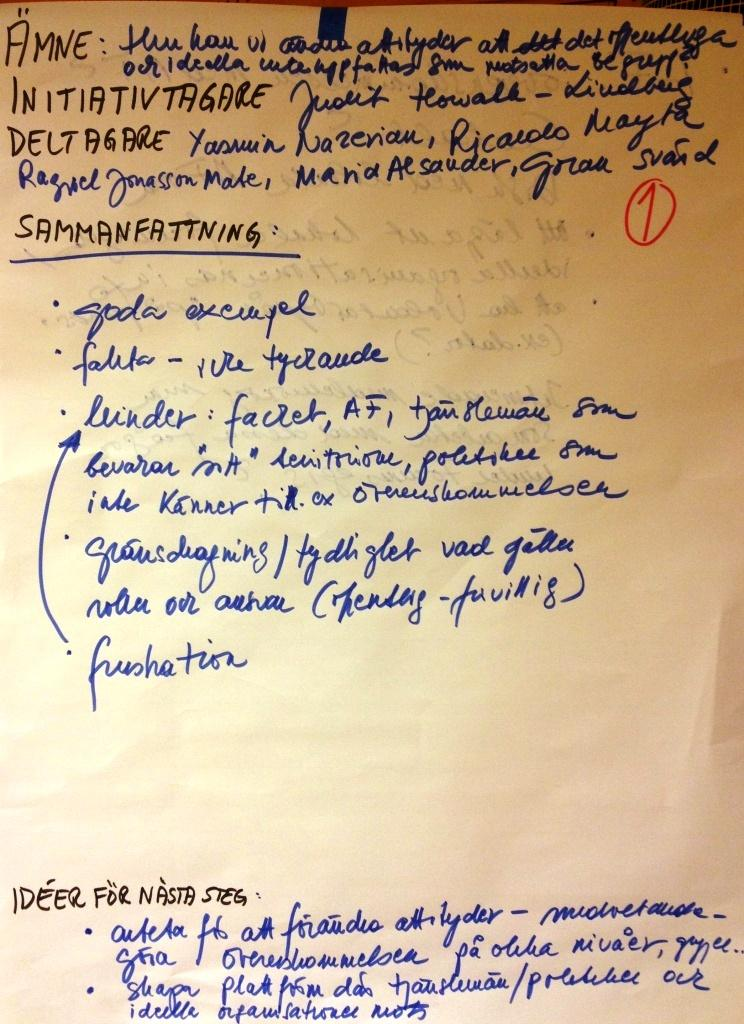 ÄMNE: Hur kan vi ändra attityder att det det offentliga
och ideella inte uppfattas som motsatta begrepp
INITIATIVTAGARE Judit Howalk-Lindberg
DELTAGARE Yasmin Nazerian, Ricardo Mayta
Raquel Jonasson Mate, Maria Alsander, Göran Svärd
①
SAMMANFATTNING:
• goda exempel
• fakta - icke tyckande
• hinder: facket, AF, tjänstemän som
bevarar "sitt" territorium, politiker som
inte känner till. ex överenskommelsen
• Gränsdragning/tydlighet vad gäller
roller och ansvar (offentlig-frivillig)
• frustration
IDÉER FÖR NÄSTA STEG:
• arbeta för att förändra attityder - medvetande-
göra överenskommelsen på olika nivåer, grupper..
• skapa plattform där tjänstemän/politiker och
ideella organisationer möts